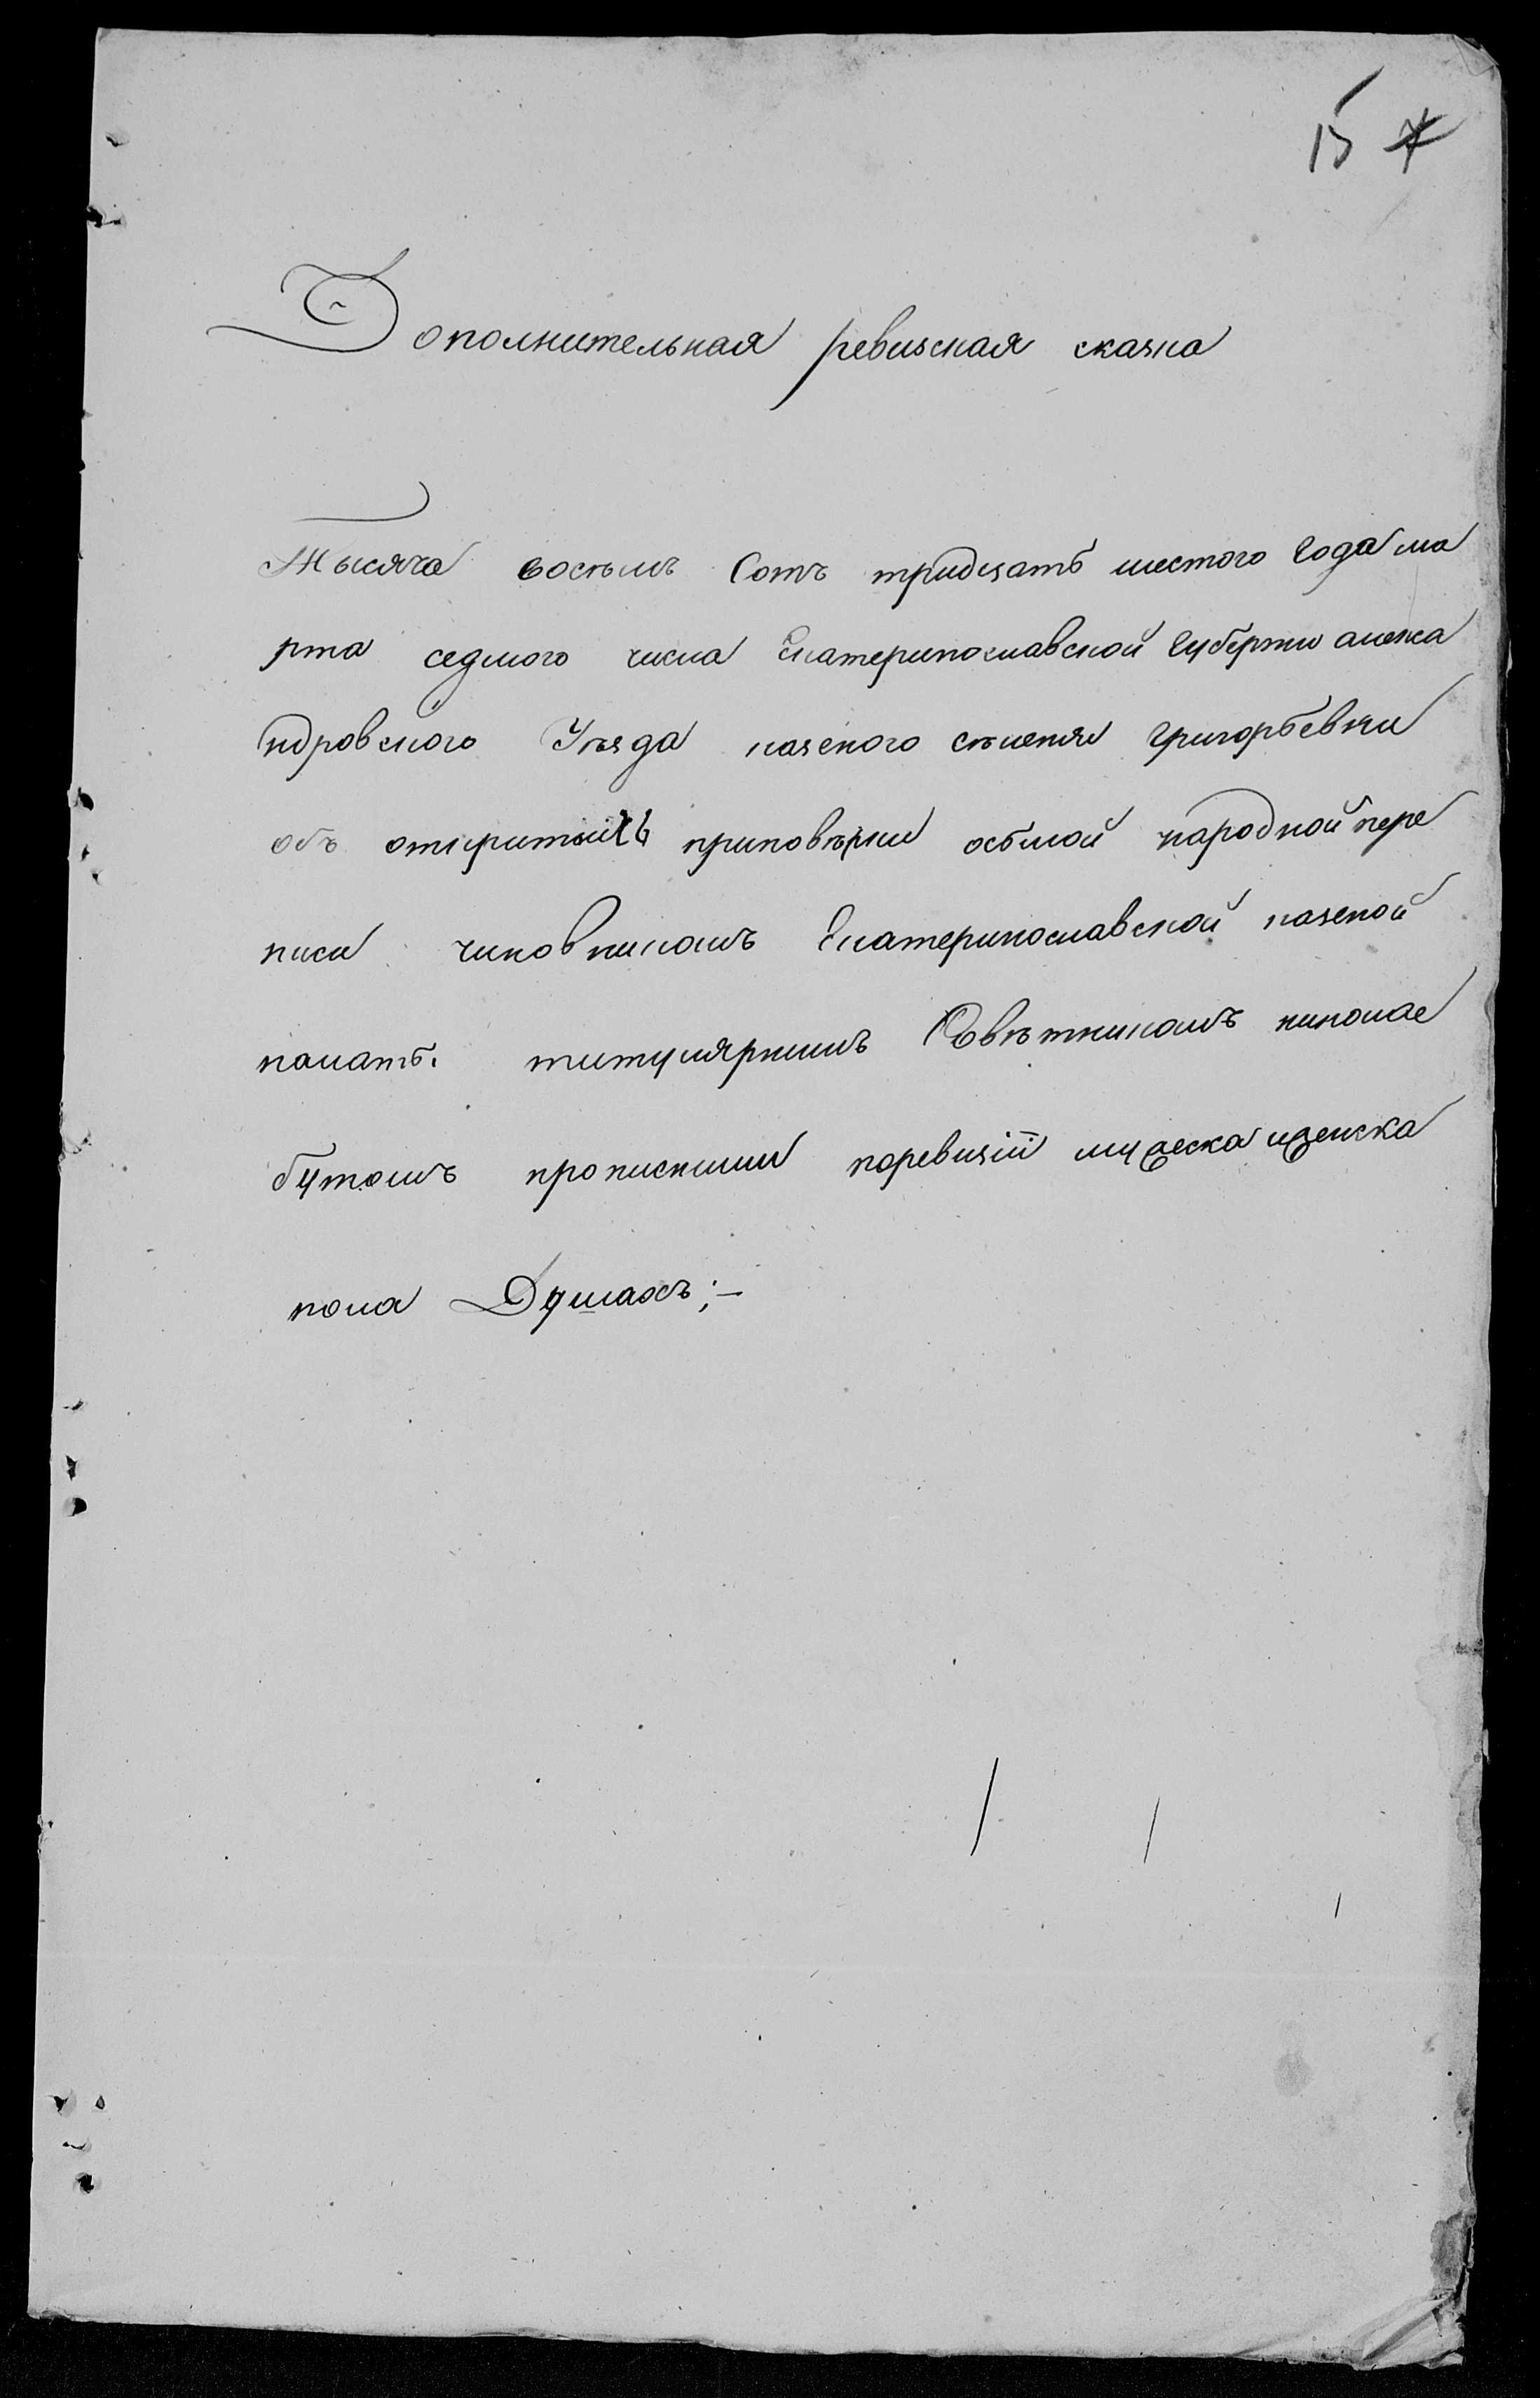 15 7
Дополнительная ревизская сказка
Тысяча восѣмъ Сотъ тридцать шестого Года ма
рта седмого числа Екатеринославской Губернии алекса
ндровского Уѣзда казеного сѣления Григорьевки
объ откритыхъ приповѣрки осьмой народной пере
писи чиновникомъ Екатеринославской казеной
палать. титулярнимъ Совѣтникомъ николае
бутомъ прописними поревизіи мужеска иженска
пола Душахъ;—